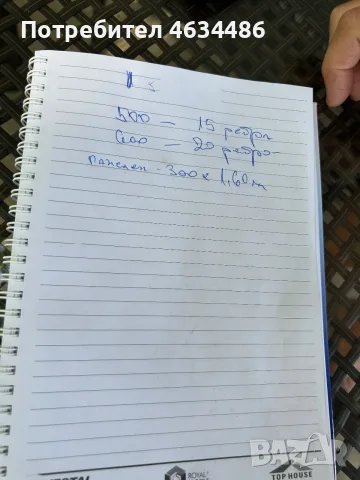 Потребител 4634486
500 – 15 ребра
600 – 20 ребра
панелен - 300 x 1,60 м
ROYAL
TOP HOUSE
BAZAR